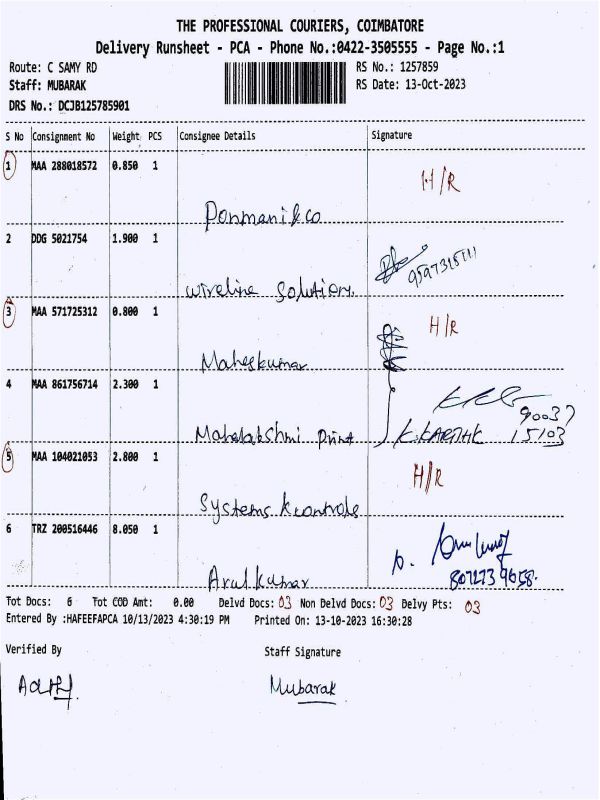 THE PROFESSIONAL COURIERS, COIMBATORE
Delivery Runsheet - PCA - Phone No.:0422-3505555 - Page No.:1
Route: C SAMY RD RS No.: 1257859
Staff: MUBARAK RS Date: 13-Oct-2023
DRS No.: DCJB125785901
S No Consignment No Weight PCS Consignee Details Signature
1 MAA 288018572 0.850 1 H/R
Ponmani & co
2 DDG 5021754 1.900 1
wireline solution.
3 MAA 571725312 0.800 1 H/R
Maheskumar
4 MAA 861756714 2.300 1
90037
Mahalakshmi print K.KARTHIK 15103
5 MAA 104021053 2.800 1 H/R
Systems & controls
6 TRZ 200516446 8.050 1
Arul kumar
Tot Docs: 6 Tot COD Amt: 0.00 Delvd Docs: 03 Non Delvd Docs: 03 Delvy Pts: 03
Entered By :HAFEEFAPCA 10/13/2023 4:30:19 PM Printed On: 13-10-2023 16:30:28
Verified By Staff Signature
Mubarak